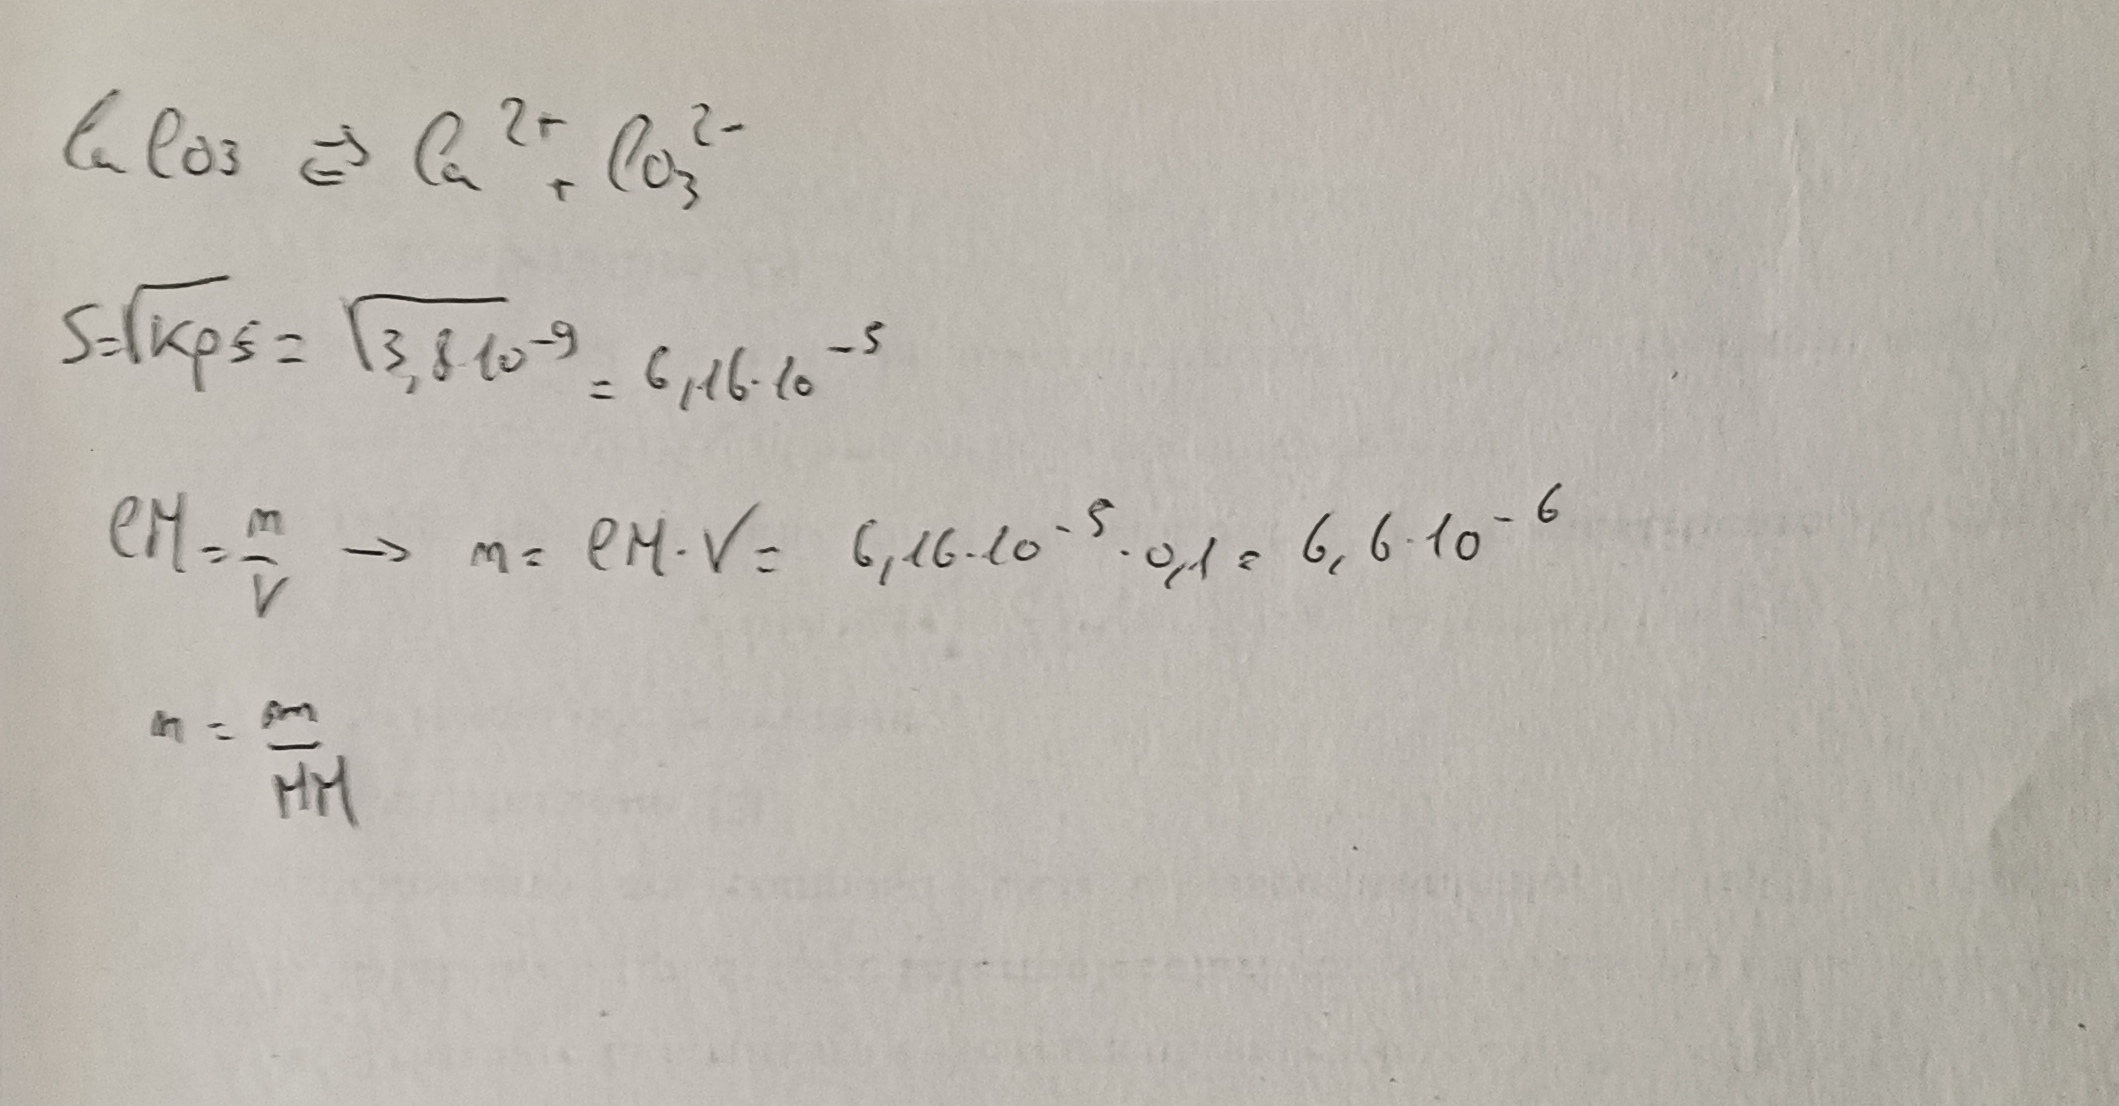 CaCO3 ⇌ Ca²⁺ + CO₃²⁻
S=√Kps = √3,8·10⁻⁹ = 6,16·10⁻⁵
CM = n/V → n = CM·V = 6,16·10⁻⁵·0,1 = 6,6·10⁻⁶
n = m/MM